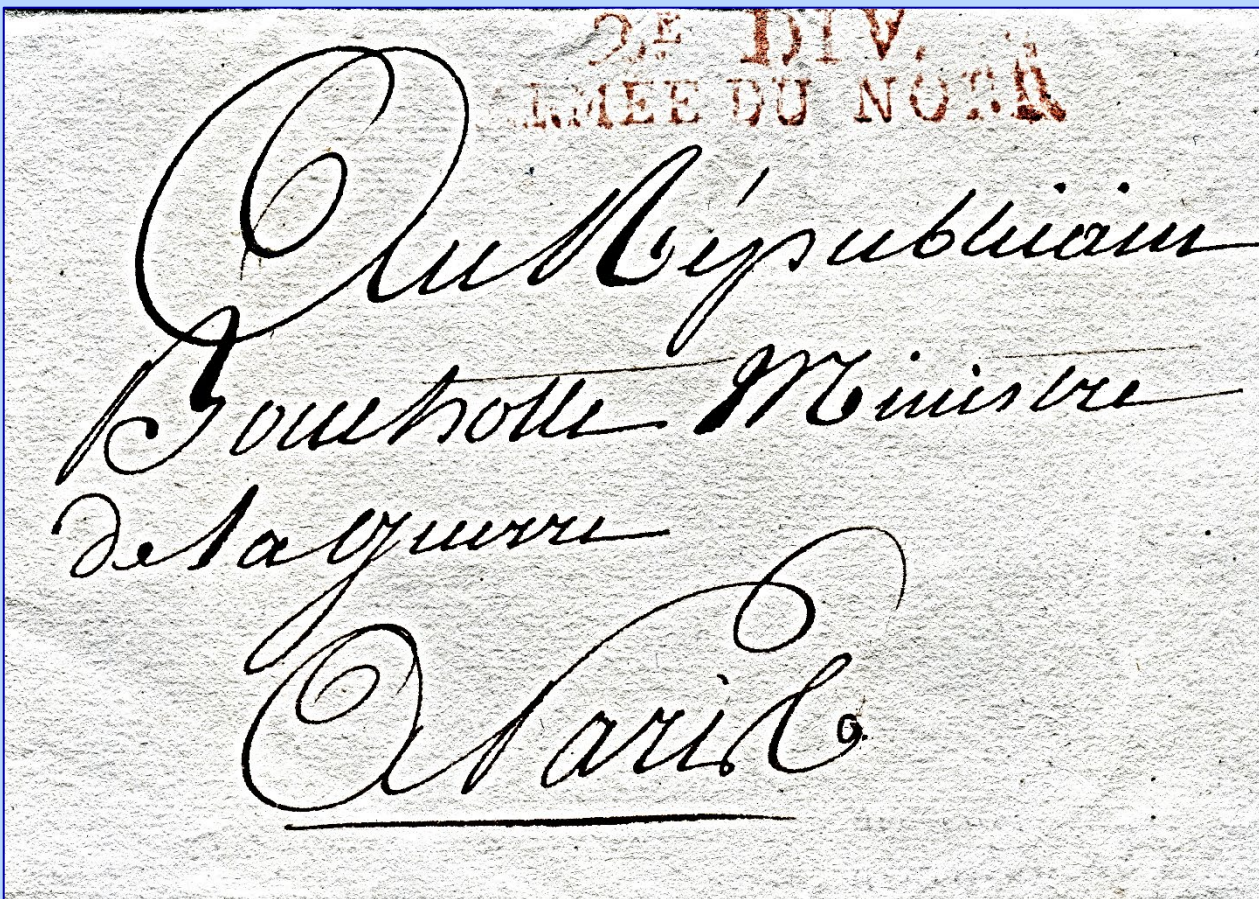 2E DIV.
ARMÉE DU NORD
Au Républicain
Bouchotte Ministre
de la guerre
A Paris